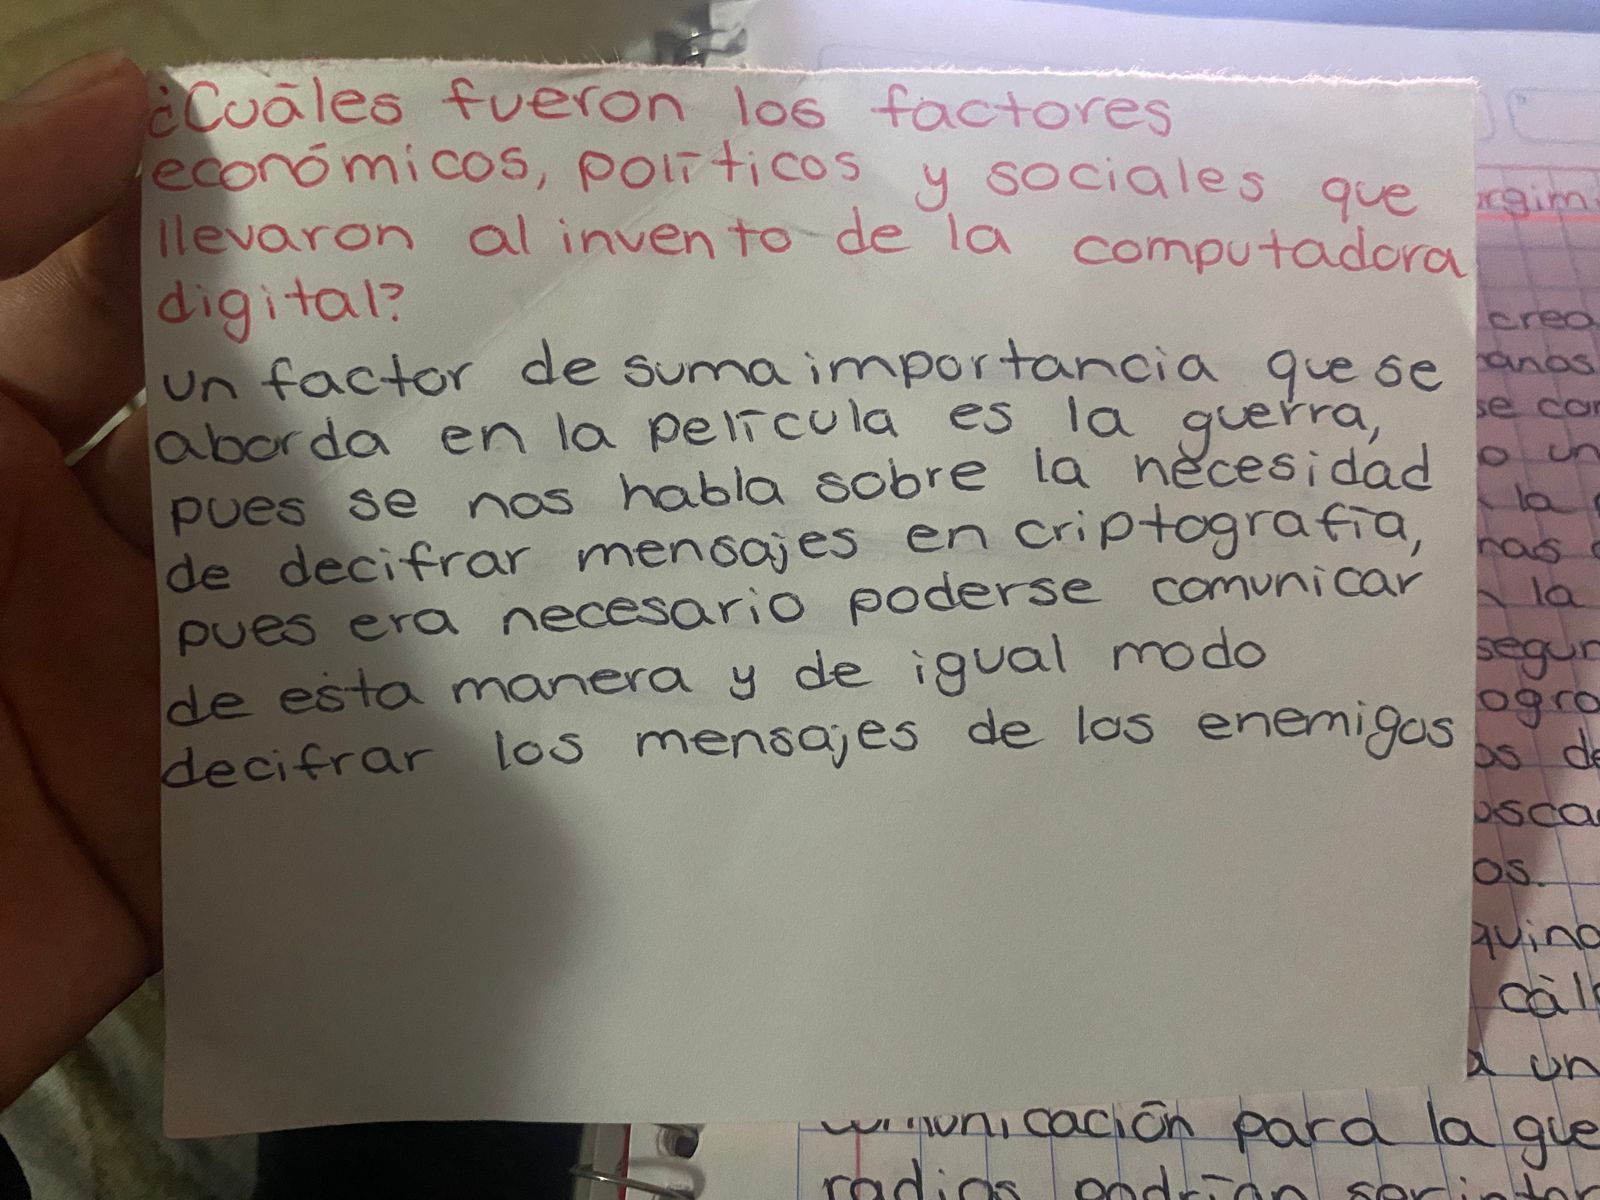 ¿Cuáles fueron los factores
económicos, políticos y sociales que
llevaron al invento de la computadora
digital?
un factor de suma importancia que se
aborda en la película es la guerra,
pues se nos habla sobre la necesidad
de decifrar mensajes en criptografía,
pues era necesario poderse comunicar
de esta manera y de igual modo
decifrar los mensajes de los enemigos
crea
anos
se con
o un
la
nas
la
segun
ogro
os de
osca
os.
quina
cál
a un
municación para la gue
radios podrían ser inter